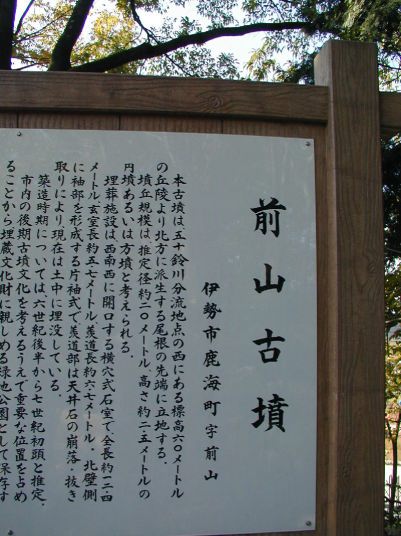 前山古墳
伊勢市鹿海町字前山
本古墳は五十鈴川分流地点の西にある標高六〇メートル
の丘陵より北方に派生する尾根の先端に立地する。
墳丘規模は、推定径約二〇メートル、高さ約二・五メートルの
円墳あるいは方墳と考えられる。
埋葬施設は西南西に開口する横穴式石室で全長約一二・四
メートル、玄室長約五・七メートル、羨道長約六・七メートル。北壁側
に袖部を形成する片袖式で羨道部は天井石の崩落・抜き
取りにより現在は土中に埋没している。
築造時期については六世紀後半から七世紀初頭と推定、
市内の後期古墳文化を考えるうえで重要な位置を占め
ることから埋蔵文化財に親しめる緑地公園として保存す